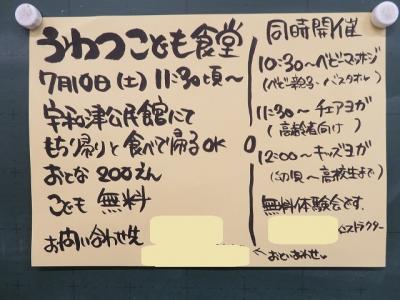 うわつこども食堂
7月10日(土) 11:30頃〜
宇和津公民館にて
もち帰りと食べて帰るOK
おとな 200えん
こども 無料
お問い合わせ先
同時開催
10:30〜ベビーマッサージ
(ベビ親子・バスタオル)
11:30〜チェアヨガ
(高齢者向け)
12:00〜キッズヨガ
(幼児〜高校生まで)
無料体験会です。
インストラクター
←おといあわせ